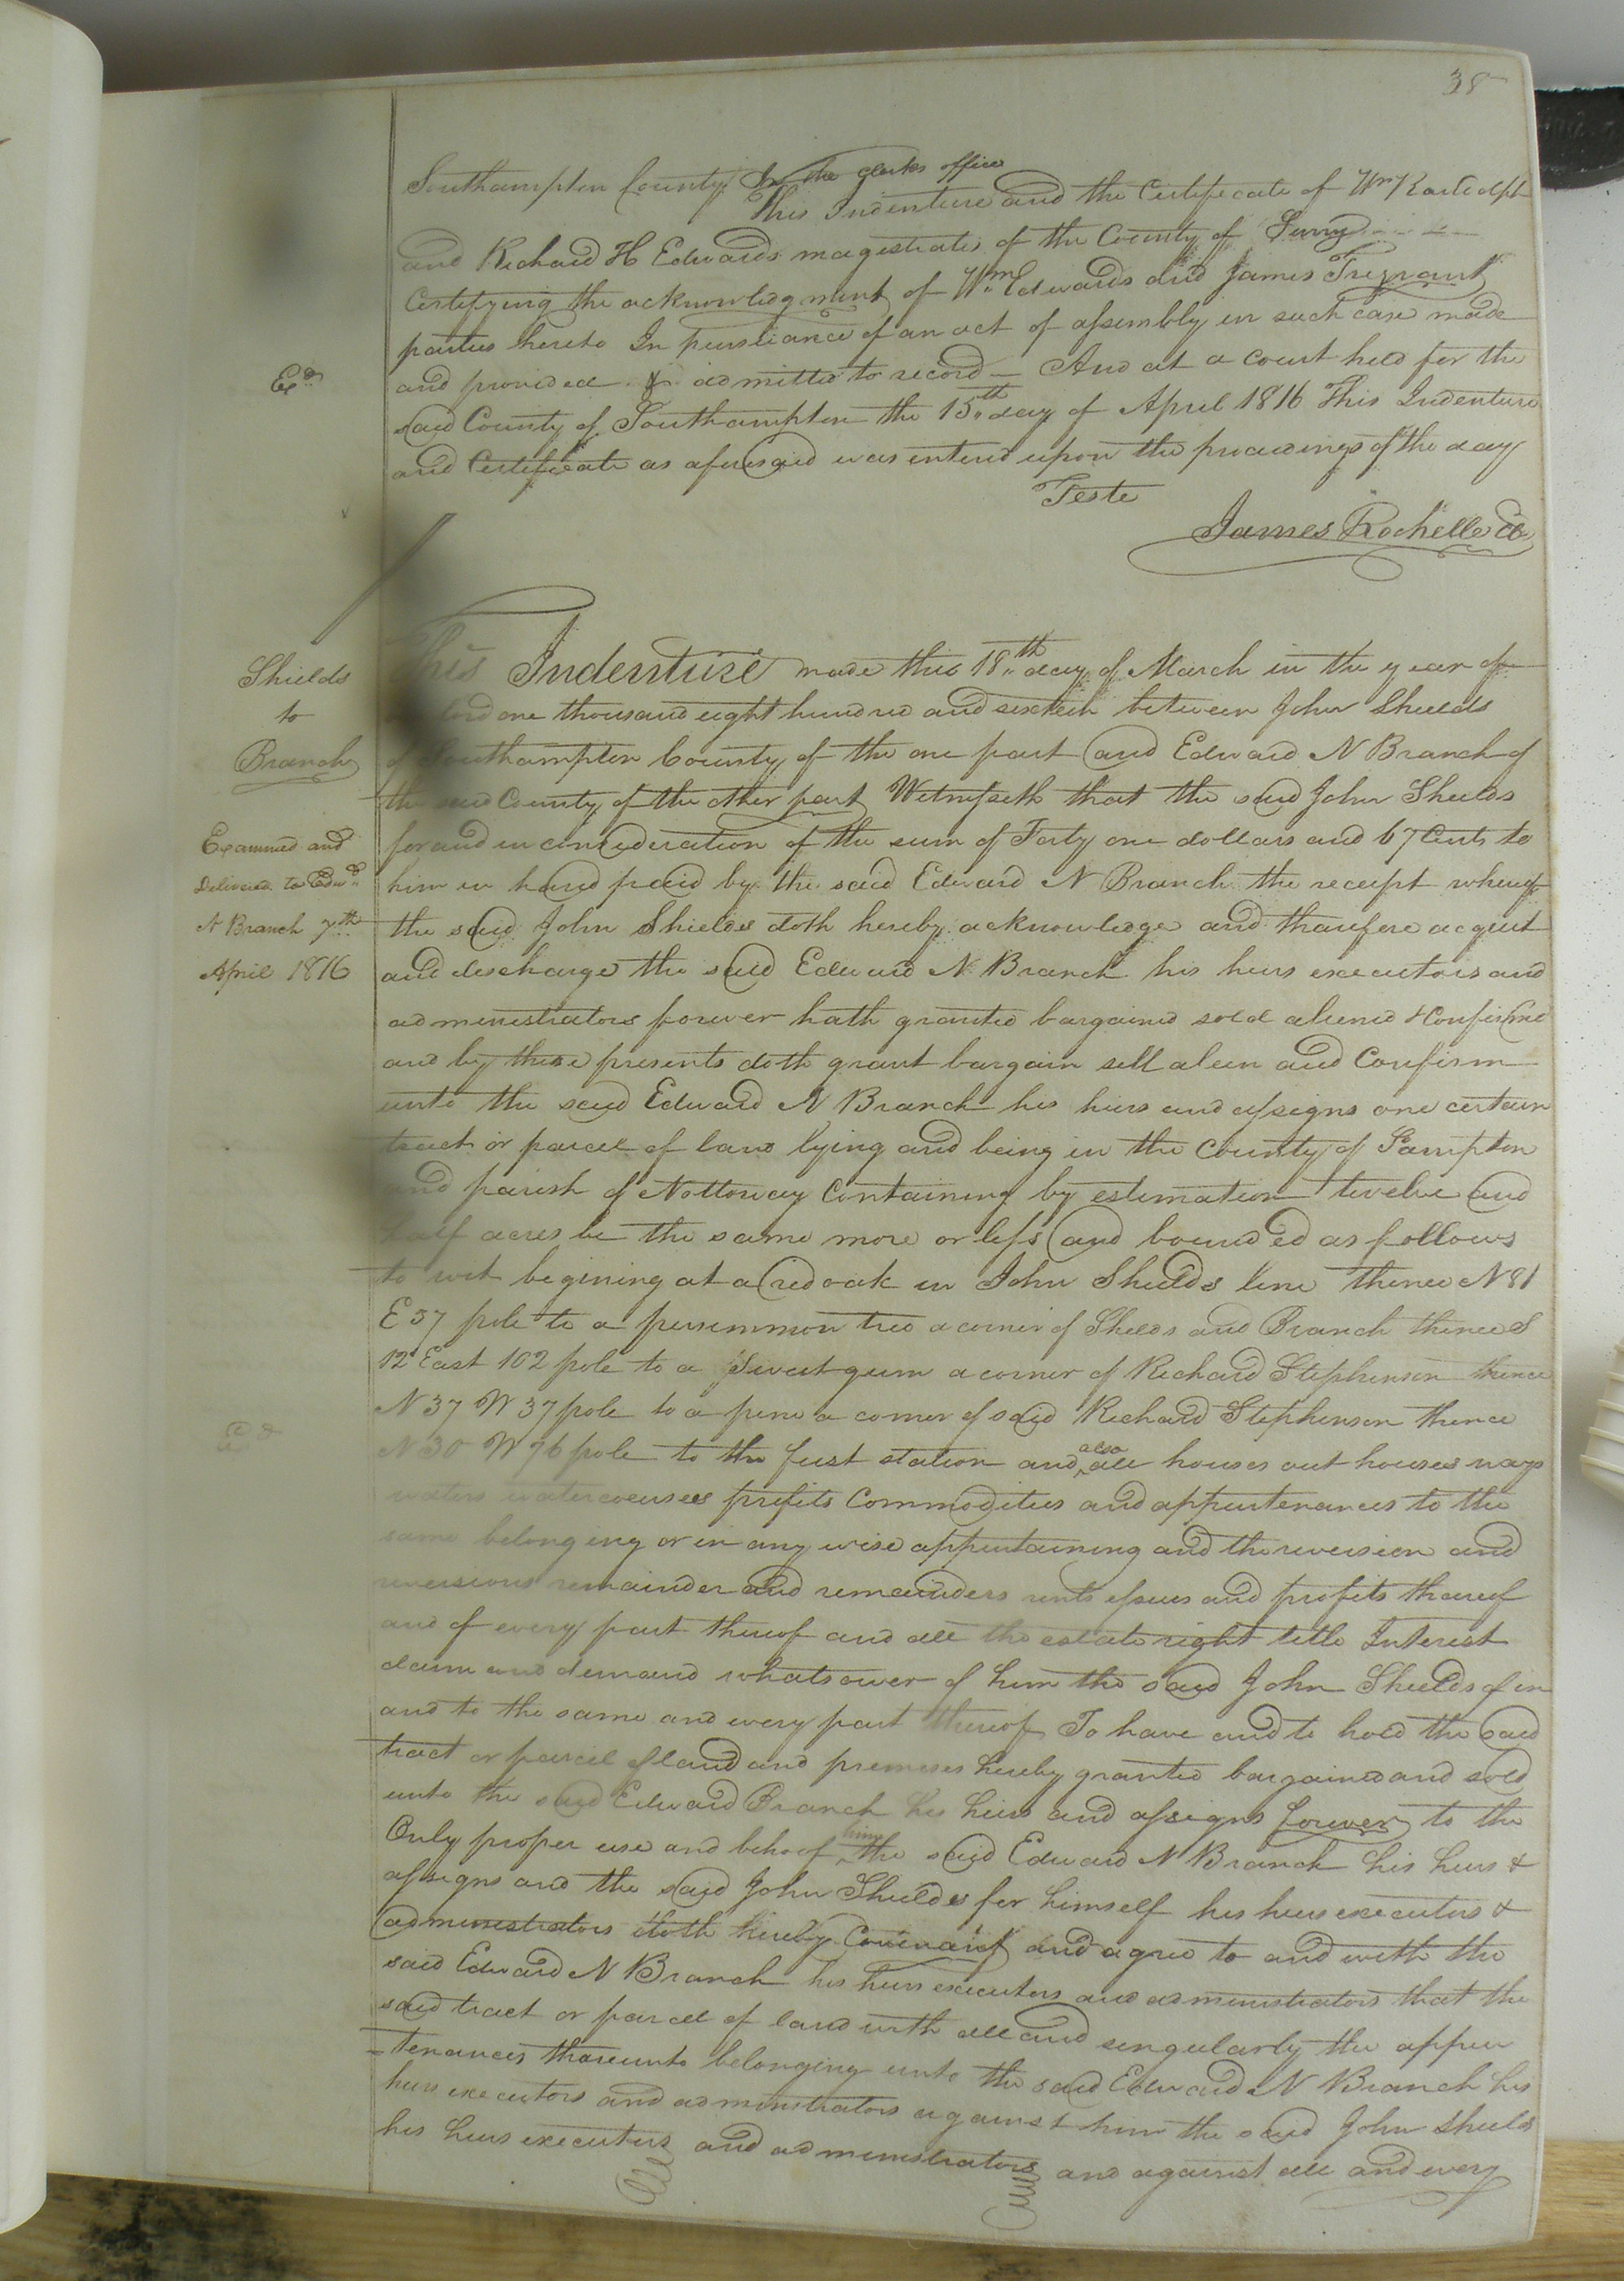 38
Southampton County In the clerks office
This Indenture and the Certificate of Wm Randolph
and Richard H Edwards magestrates of the County of Surry
Certifying the acknowledgment of Wm Edwards and James Trezvant
parties hereto In pursuance of an act of assembly in such case made
and provided admitted to record – And at a court held for the
said County of Southampton the 15th day of April 1816 This Indenture
and Certificate as aforesaid was entered upon the proceedings of the day
Teste
James Rochelle
Exd
Shields
to
Branch
Examined and
Delivered to Edwd
N Branch 7th
April 1816
Exd
This Indenture made this 18th day of March in the year of
lord one thousand eight hundred and sixteen between John Shields
of Southampton County of the one part and Edward N Branch of
the said County of the other part Witnesseth that the said John Shields
for and in consideration of the sum of Forty one dollars and 67 Cents to
him in hand paid by the said Edward N Branch the receipt whereof
the said John Shields doth hereby acknowledge and therefore acquit
and discharge the said Edward N Branch his heirs executors and
administrators forever hath granted bargained sold aliened & Confirmed
and by these presents doth grant bargain sell alien and Confirm
unto the said Edward N Branch his heirs and assigns one certain
tract or parcel of land lying and being in the County of Sampton
and parish of Nottoway Containing by estimation twelve and
half acres be the same more or less and bounded as follows
to wit begining at a red oak in John Shields line thence N 81
E 37 pole to a persemmon tree a corner of Shelds and Branch thence S
12 East 102 pole to a Sweet gum a corner of Richard Stephenson thence
N 37 W 37 pole to a pine a corner of said Richard Stephenson thence
N 30 W 76 pole to the first station and also all houses out houses ways
waters watercourses profits Commodities and appurtenances to the
same belonging or in any wise appurtaining and the reversion and
reversions remainder and remainders rents issues and profits thereof
and of every part thereof and all the estate right title Interest
claim and demand whatsoever of him the said John Shields of in
and to the same and every part thereof To have and to hold the said
tract or parcel of land and premeses hereby granted bargained and sold
unto the said Edward Branch his heirs and assigns forever to the
Only proper use and behoof him the said Edward N Branch his heirs &
assigns and the said John Shields for himself his heirs executors &
administrators doth hereby Covenant and agree to and with the
said Edward N Branch his heirs executors and administrators that the
said tract or parcel of land with all and singularly the appur
=tenances thereunto belonging unto the said Edward N Branch his
heirs executors and administrators against him the said John Shields
his heirs executors and administrators and against all and every